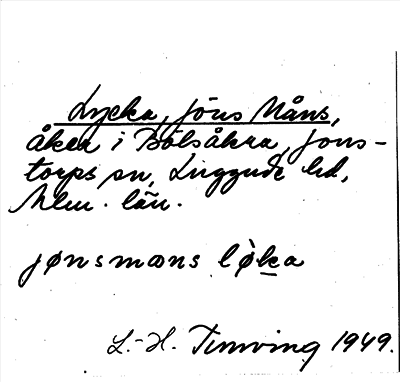 Lycka, Jöns Måns,
åker i Bölsåkra, Jons-
torps sn, Luggude hd,
Mlm. län.
jønsmans lø̀ka
L.-H. Tunving 1949.